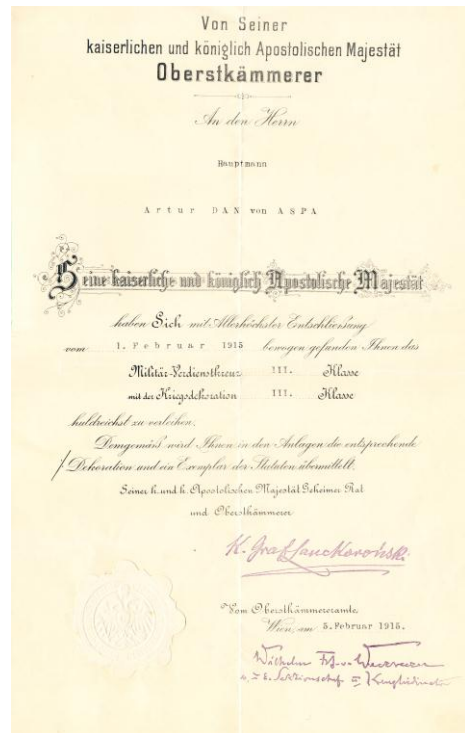 Von Seiner
kaiserlichen und königlich Apostolischen Majestät
Oberstkämmerer
An den Herrn
Hauptmann
Artur DAN von ASPA
Seine kaiserliche und königlich Apostolische Majestät
haben Sich mit Allerhöchster Entschliessung
vom 1. Februar 1915 bewogen gefunden Ihnen das
Militär-Verdienstkreuz III. Klasse
mit der Kriegsdekoration III. Klasse
huldreichst zu verleihen.
Demgemäß wird Ihnen in den Anlagen die entsprechende
Dekoration und ein Exemplar der Statuten übermittelt.
Seiner k. und k. Apostolischen Majestät Geheimer Rat
und Oberstkämmerer
K. Graf Lanckoroński.
Vom Oberstkämmereramte.
Wien, am 5. Februar 1915.
Wilhelm Frh. v.
k. u. k. Sektionschef u. Kanzleidirektor